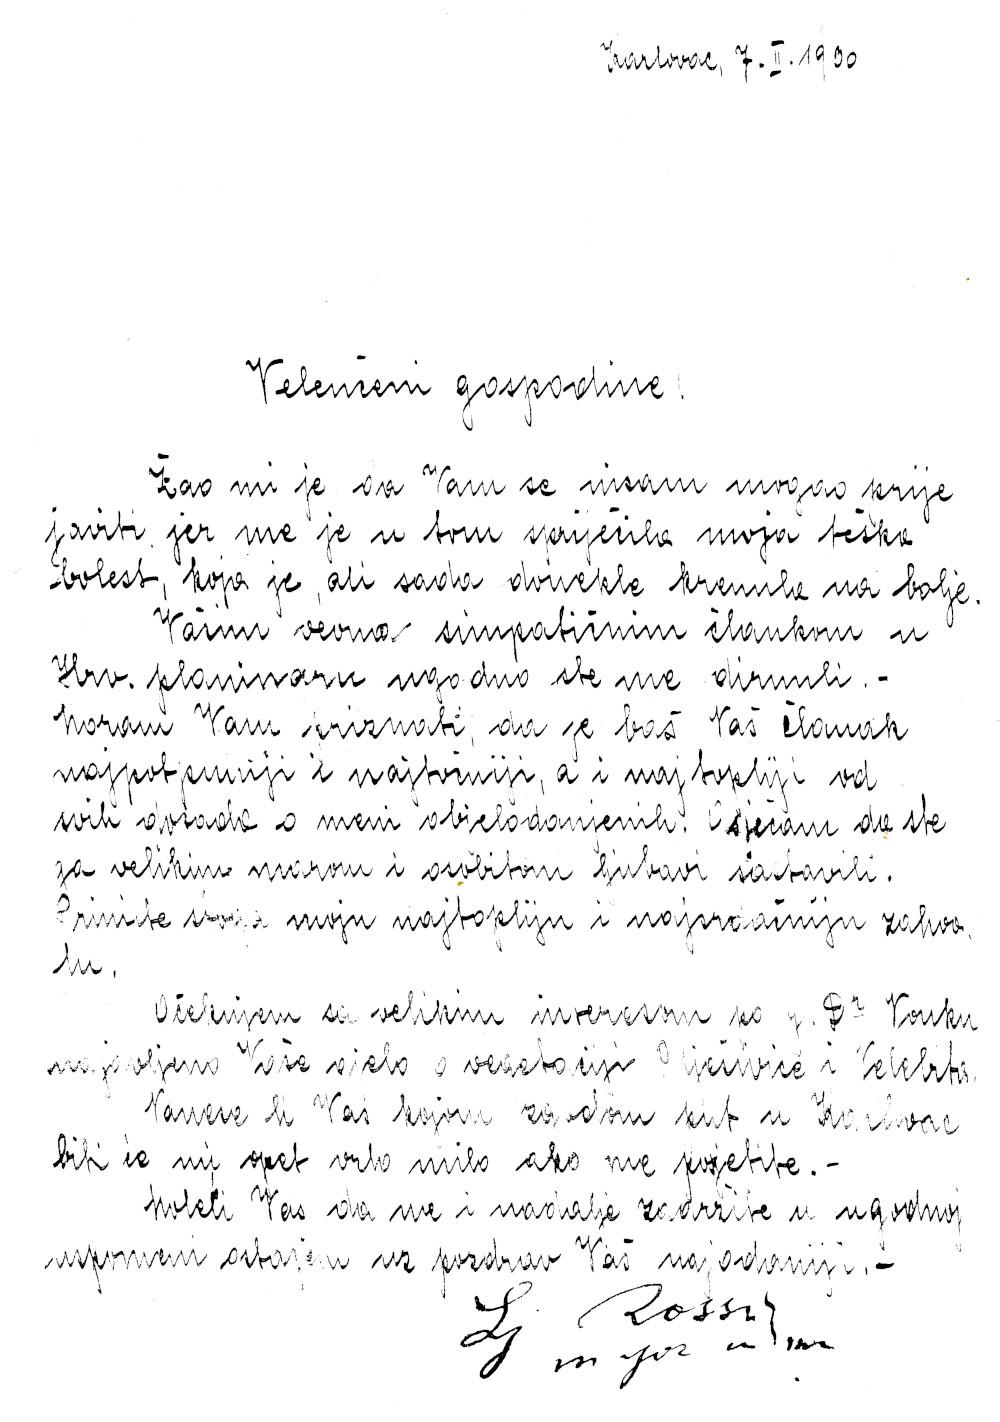 Karlovac, 7. II. 1930
Velenčeni gospodine!
Žao mi je da Vam se nisam mogao prije
javiti jer me je u tom spriječila moja teška
bolest, koja je, ali sada donekle krenula na bolje.
Vašim veoma simpatičnim člankom u
Hrv. planinaru ugodno ste me dirnuli. -
Moram Vam priznati, da je baš Vaš članak
najpotpuniji i najtočniji, a i najtopliji od
svih dosada o meni objelodanjenih. Osjećam da ste
ga velikim marom i osobitom ljubavi sastavili.
Primite stoga moju najtopliju i najsrdačniju zahva-
lu.
Očekujem sa velikim interesom po g. Dr Vouku
najavljeno Vaše djelo o vegetaciji Plješivice i Velebita.
Nanese li Vas kojom zgodom put u Karlovac
biti će mi opet vrlo milo ako me posjetite. -
Moleći Vas da me i nadalje zadržite u ugodnoj
uspomeni ostajem uz pozdrav Vaš najodaniji. -
Lj Rossi
major u m.